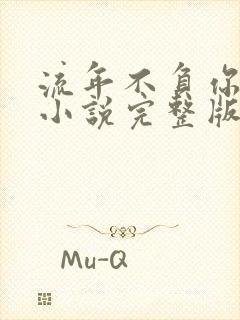 流年不负你
小说完整版
Mu-Q